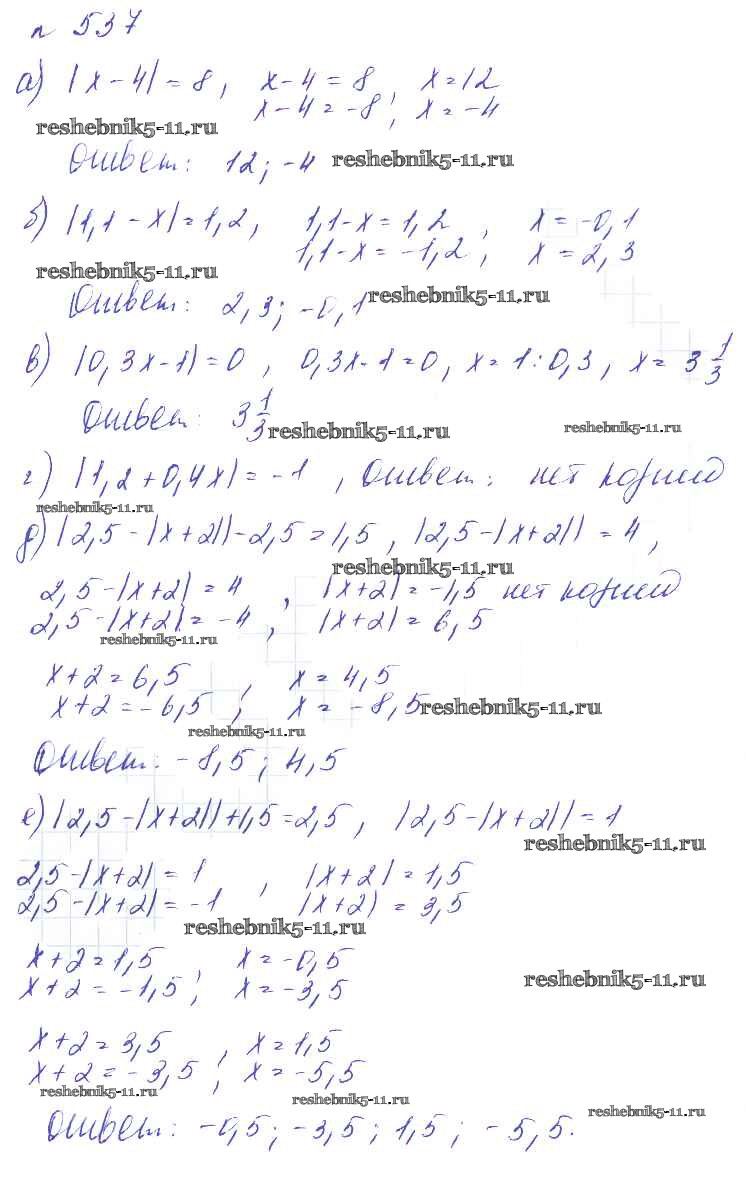 n 537
а) |x-4|=8, x-4=8, x=12
x-4=-8; x=-4
reshebnik5-11.ru
Ответ: 12; -4 reshebnik5-11.ru
б) |1,1-x|=1,2, 1,1-x=1,2, x=-0,1
1,1-x=-1,2; x=2,3
reshebnik5-11.ru
Ответ: 2,3; -0,1 reshebnik5-11.ru
в) |0,3x-1|=0, 0,3x-1=0, x=1:0,3, x=3 1/3
Ответ: 3 1/3 reshebnik5-11.ru reshebnik5-11.ru
г) |1,2+0,4x|=-1, Ответ: нет корней
reshebnik5-11.ru
д) |2,5-|x+2||-2,5=1,5, |2,5-|x+2||=4,
reshebnik5-11.ru
2,5-|x+2|=4, |x+2|=-1,5 нет корней
2,5-|x+2|=-4, |x+2|=6,5
reshebnik5-11.ru
x+2=6,5, x=4,5
x+2=-6,5; x=-8,5 reshebnik5-11.ru
reshebnik5-11.ru
Ответ: -8,5; 4,5
е) |2,5-|x+2||+1,5=2,5, |2,5-|x+2||=1
reshebnik5-11.ru
2,5-|x+2|=1, |x+2|=1,5
2,5-|x+2|=-1 |x+2|=3,5
reshebnik5-11.ru
x+2=1,5, x=-0,5
x+2=-1,5; x=-3,5 reshebnik5-11.ru
x+2=3,5, x=1,5
x+2=-3,5; x=-5,5
reshebnik5-11.ru reshebnik5-11.ru reshebnik5-11.ru
Ответ: -0,5; -3,5; 1,5; -5,5.